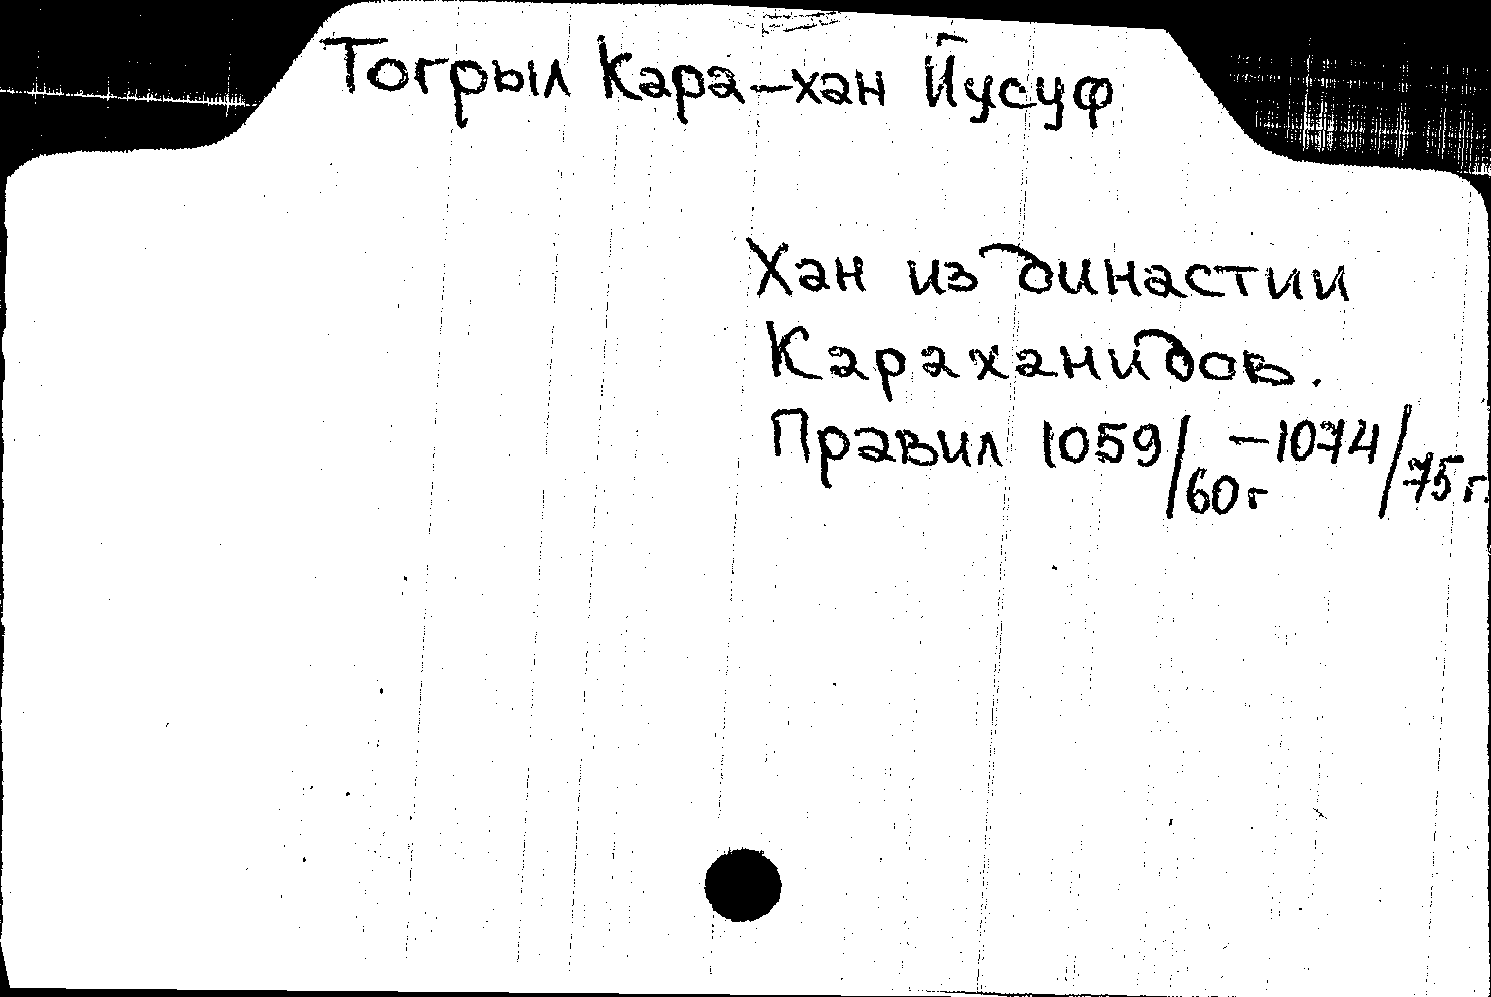 Тогрыл Кара-хан Йусуф
Хан из династии
Караханидов.
Правил 1059/60г - 1074/75г.